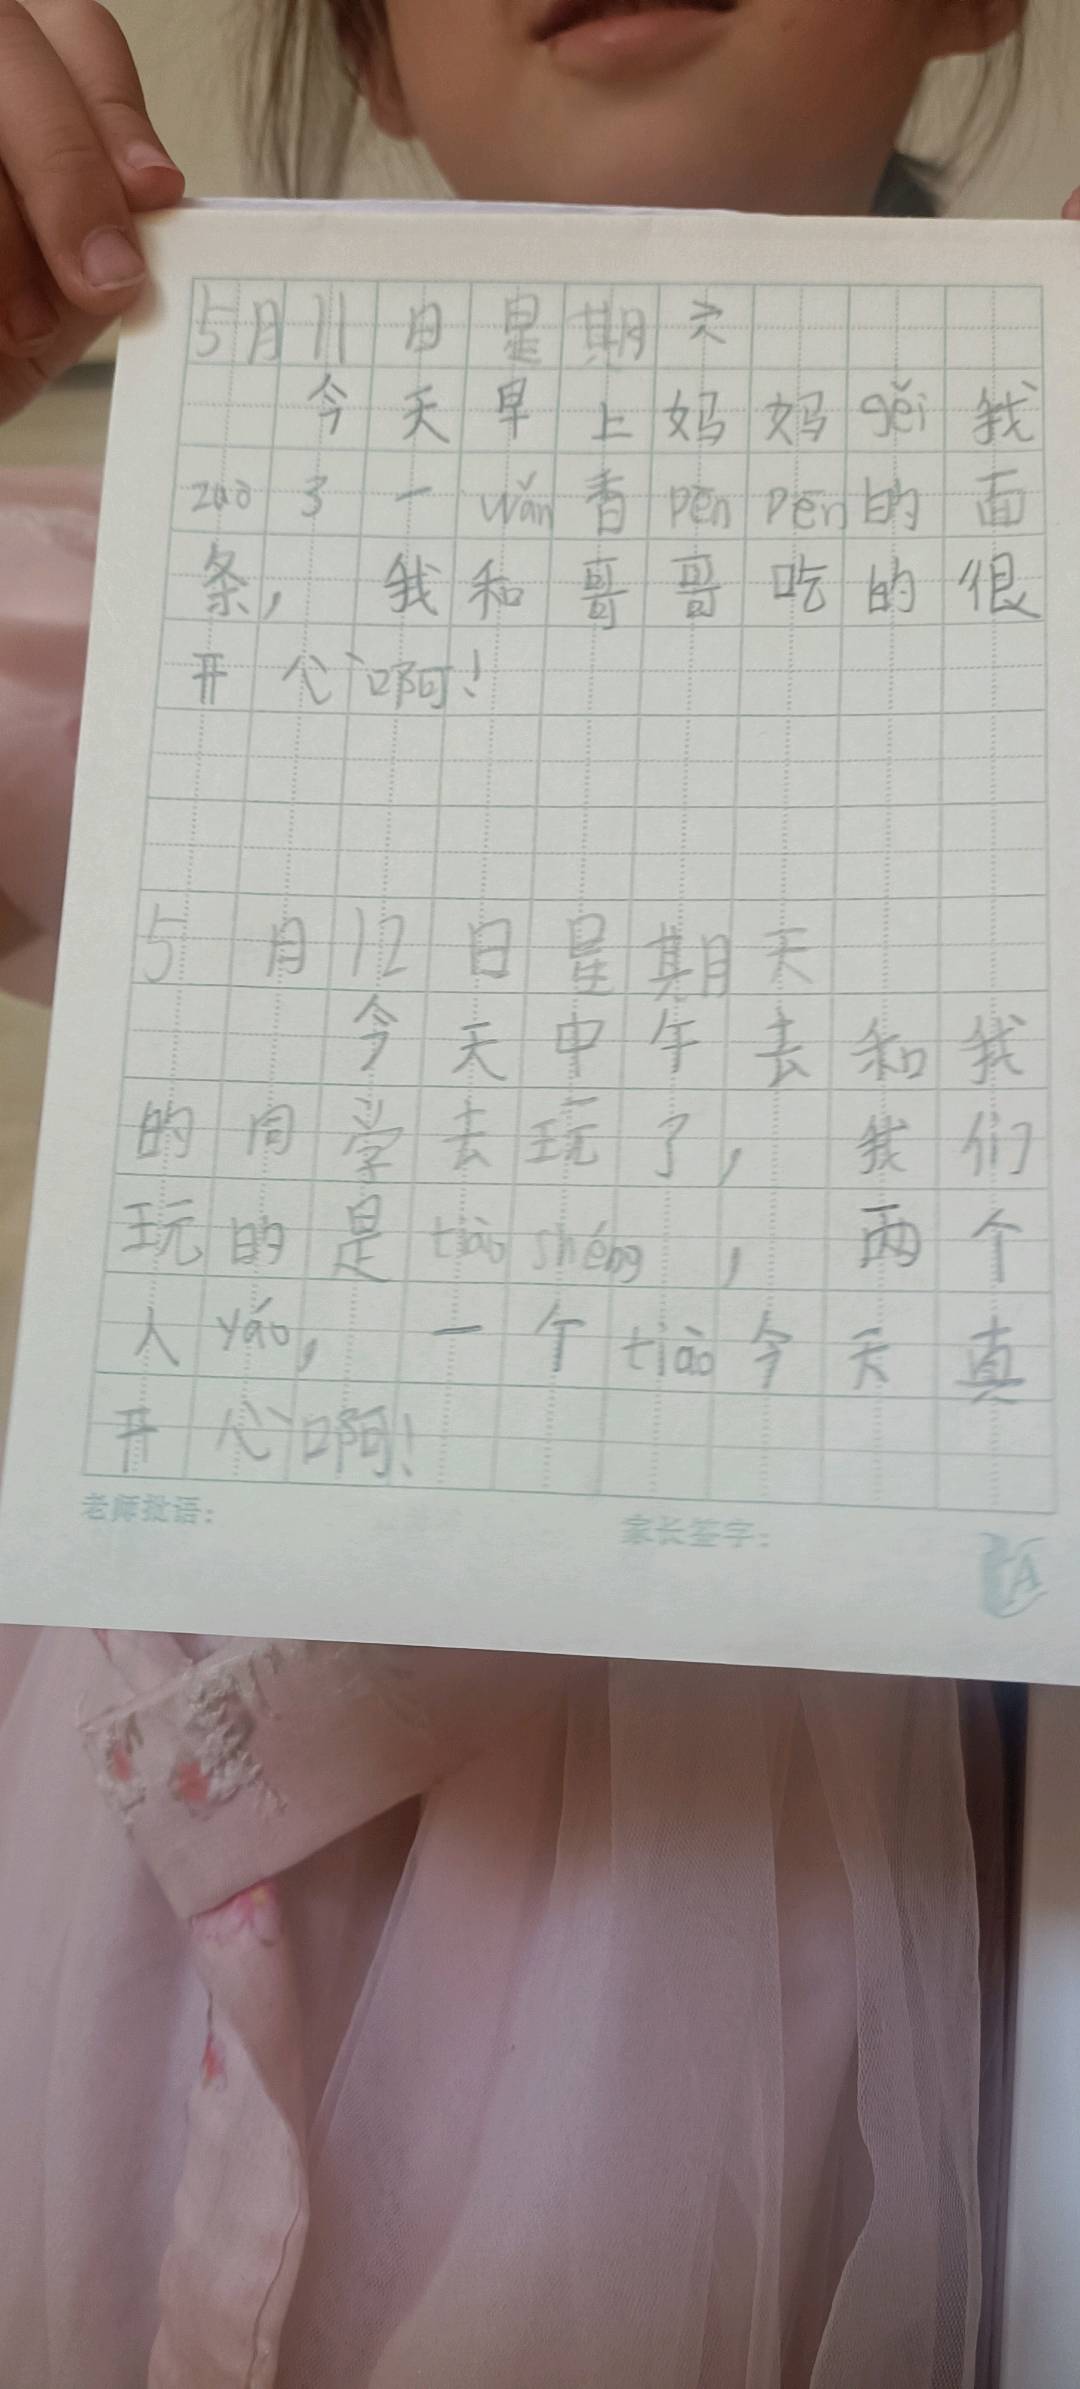 5月11日星期六
今天早上妈妈gěi我
zuò了一wǎn香pēnpēn的面
条，我和哥哥吃的很
开心啊！
5月12日星期天
今天中午去和我
的同学去玩了，我们
玩的是tiào shéng，两个
人yáo，一个tiào今天真
开心啊！
老师批语：家长签字：